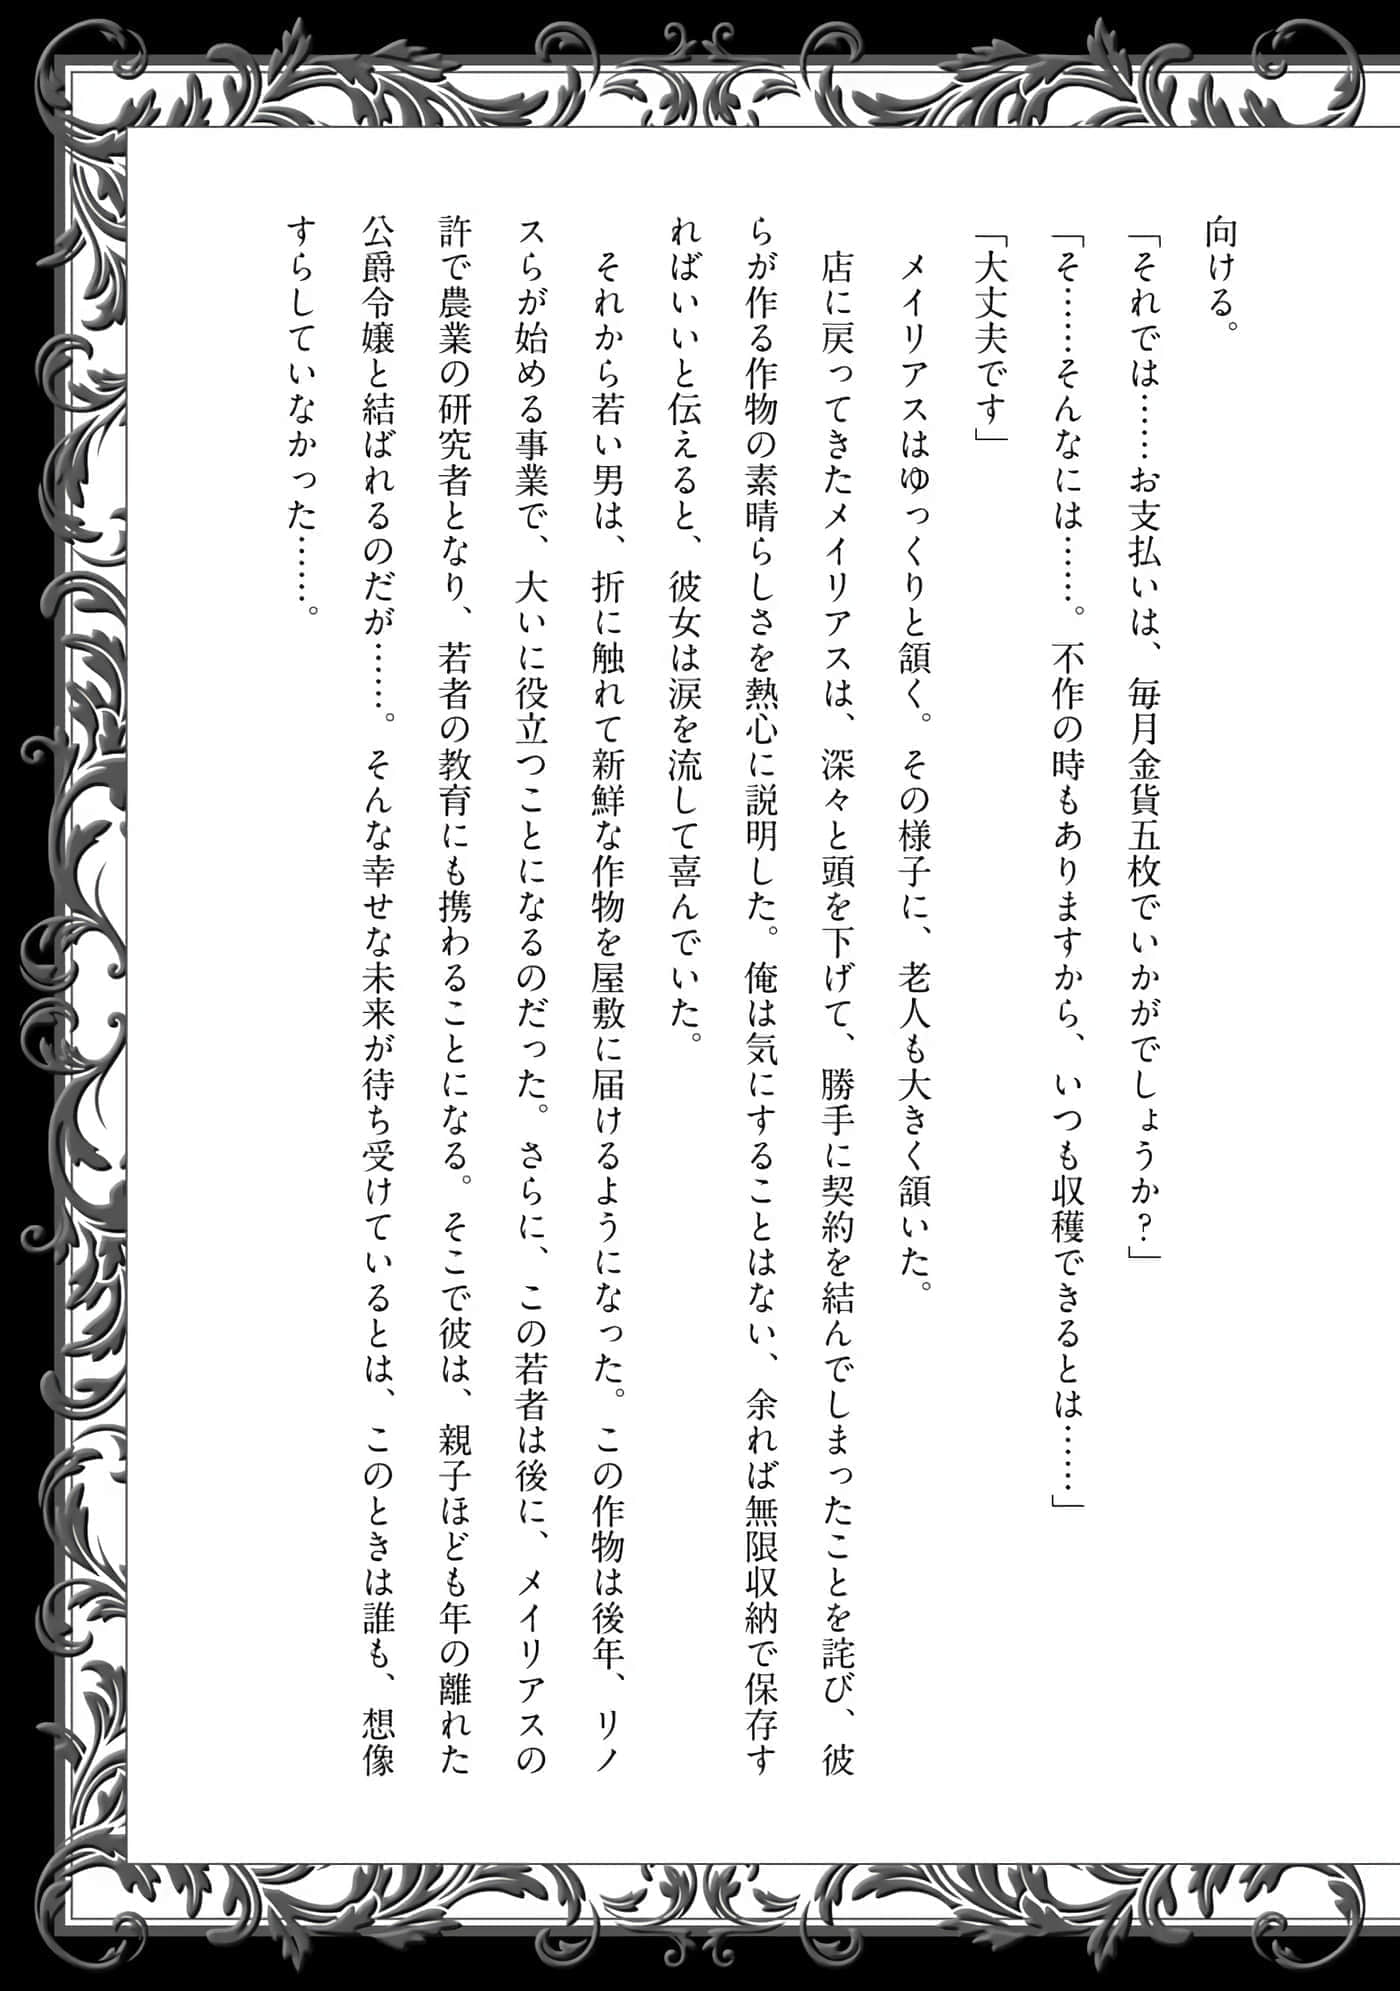 向ける。
「それでは……お支払いは、毎月金貨五枚でいかがでしょうか?」
「そ……そんなには……。不作の時もありますから、いつも収穫できるとは……」
「大丈夫です」
メイリアスはゆっくりと頷く。その様子に、老人も大きく頷いた。
店に戻ってきたメイリアスは、深々と頭を下げて、勝手に契約を結んでしまったことを詫び、彼
らが作る作物の素晴らしさを熱心に説明した。俺は気にすることはない、余れば無限収納で保存す
ればいいと伝えると、彼女は涙を流して喜んでいた。
それから若い男は、折に触れて新鮮な作物を屋敷に届けるようになった。この作物は後年、リノ
スらが始める事業で、大いに役立つことになるのだった。さらに、この若者は後に、メイリアスの
許で農業の研究者となり、若者の教育にも携わることになる。そこで彼は、親子ほども年の離れた
公爵令嬢と結ばれるのだが……。そんな幸せな未来が待ち受けているとは、このときは誰も、想像
すらしていなかった……。